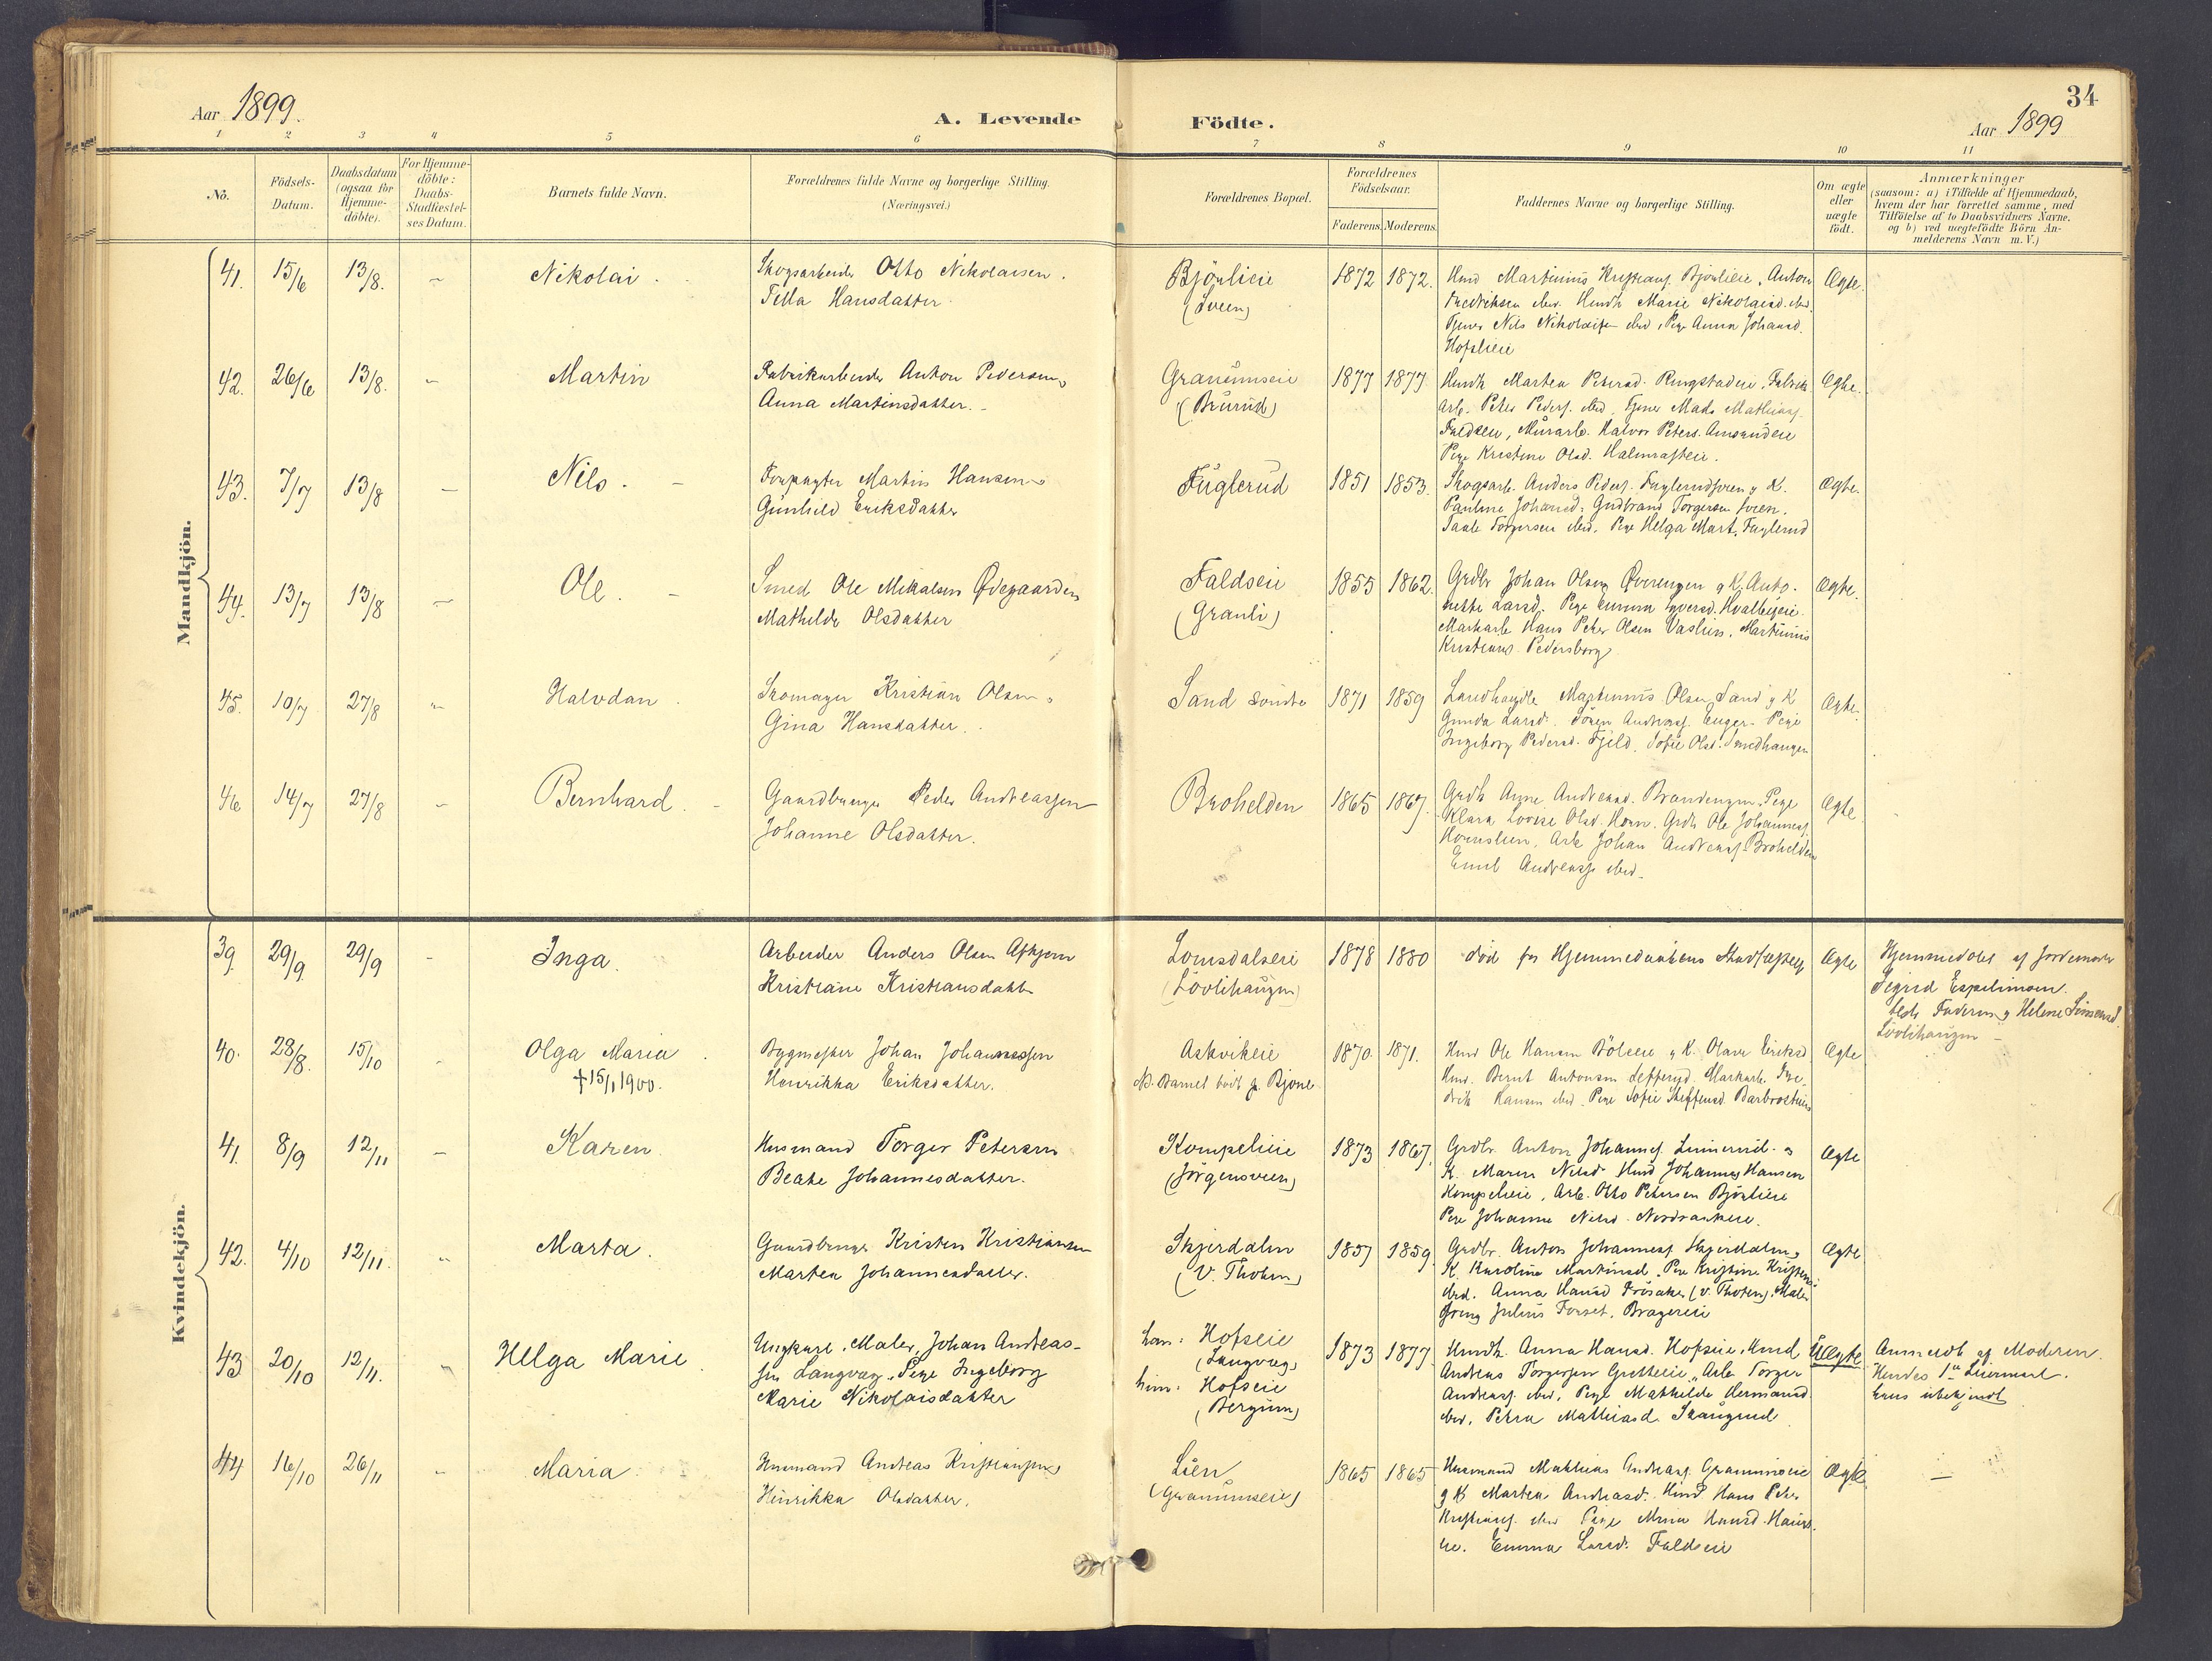 34
Aar 1899.
A. Levende Födte.
Aar 1899
1 2 3 4 5 6 7 8 9 10 11
No.
Födsels-
Datum.
Daabsdatum
(ogsaa for
Hjemme-
döbte).
For Hjemme-
döbte:
Daabs-
Stadfæstel-
ses Datum.
Barnets fulde Navn.
Forældrenes fulde Navne og borgerlige Stilling.
(Næringsvei.)
Forældrenes Bopæl.
Forældrenes
Födselsaar.
Faderens. Moderens.
Faddernes Navne og borgerlige Stilling.
Om ægte
eller
uægte
födt.
Anmærkninger
(saasom: a) i Tilfælde af Hjemmedaab,
hvem der har forrettet samme, med
Tilföielse af to Daabsvidners Navne,
og b) ved uægtefödte Börn An-
melderens Navn m. V.)
Mandkjön.
41. 15/6 13/8. – Nikolai.
Skogsarbeider Otto Nikolaisen.
Hansdatter
Bjönlieie
(Sveen)
1872 1872.
Hmd Martinius Kristians. Bjönlieie, Anton
Fredriksen ibd. Hmdk Marie Nikolaisd. ibd.
Tjener Nils Nikolaisen ibd, Pige Anna Johansd.
Hofslieie
Ægte.
42. 26/6 13/8. – Martin
Fabrikarbeider Anton Pedersen,
Anna Martinsdatter.
Granumseie
(Brurud)
1877 1877.
Hmdk Martea Petersd. Ringstadeie, Fabrik
arb. Peter Peders. ibd, Tjener Mads Mathias.
Faldseie, Murarb. Halvor Peters. Amundeie
Pige Kristine Olsd.
Ægte.
43. 7/7 13/8 – Nils.
Forpagter Martin Hansen
Gunhild Eriksdatter
Fuglerud
1851 1853.
Skogsarb. Anders Peders. Fuglerudsveen, K.
Pauline Johansd. Gudbrand Torgersen Sveen.
Torgersen ibd. Pige Helga Mart. Fuglerud
Ægte.
44. 13/7 13/8 – Ole.
Smed Ole Mikalsen Ødegaarden
Mathilde Olsdatter
Faldseie
(Granli)
1855 1862.
Grdbr Johan Olsen Øverengen g K. Anto-
nette Larsd. Pige Emma Iversd. Hvalbyeie.
Markarb Hans Peter Olsen Vaslien. Martinius
Kristians. Pedersborg
Ægte.
45. 10/7 27/8 – Halvdan.
Skomager Kristian Olsen,
Gina Hansdatter.
Sand söndre
1871 1859
Landhandle Martinius Olsen Sand g K
Gunda Larsd. Sören Andreas. Enger. Pige
Ingeborg Pedersd. Fjeld. Sofie Olsd. Smedhaugen
Ægte.
46 14/7 27/8 – Bernhard.
Gaardbruger Peder Andreassen
Johanne Olsdatter.
Brohelden
1865 1867.
Grdk Anne Andreasd. Brandengen. Pige
Klara Lovise Olsd. Horn. Grdb Ole Johanness.
Hornslien, Arb Johan Andreass. Brohelden
Emil Andreass. ibd.
Ægte
Kvindekjön.
39. 29/9. 29/9 – Inga.
Arbeider Anders Olsen Askjem
Kristiane Kristiansdatter
Lomsdalseie
(Lövlihaugen)
1878 1880
död før Hjemmedaabens Stadfæstelse
Ægte
Hjemmedöbt af Jordemoder
Sigrid Espelinsen.
Tilst. Faderen g Helene Simensd.
Lövlihaugen
40. 28/8. 15/10 Olga Maria.
†15/1 1900.
Bygmester Johan Johannessen
Henrikka Eriksdatter.
Askvikeie
NB. Barnet födt p. Bjone
1870. 1871.
Hmd Ole Hansen Böleeie g K. Olava Eriksd
Hmd. Bernt Antonsen Markarb. Fre-
drik Hansen ibd. Pige Sofie Steffensd.
Ægte
41. 8/9 12/11 – Karen.
Husmand Torger Petersen
Beate Johannesdatter.
Kompelieie
(Jörgensveen)
1873 1867.
Grdbr. Anton Johannes. Linnerud g
K. Maren Nilsd. Hmd Johannes Hansen
Kompelieie, Arb. Otto Petersen Bjönlieie
Pige Johanne Nilsd.
Ægte
42. 4/10 12/11. – Marta.
Gaardbruger Kristen Kristiansen
Martea Johannesdatter.
Skjerdalen
(V. Thoten)
1857 1859.
Grdbr. Anton Johanness. Skjerdalen,
K. Karoline Martinsd. Pige Kristine Kristens.
ibd. Anna Hansd Frösaker (V. Thoten). Maler
Julius Forset, Bragereie
Ægte
43 20/10 12/11. – Helga Marie.
Ungkarl, Maler, Johan Andreas-
sen Langvag. Pige Ingeborg
Marie Nikolaisdatter
han: Hofseie
(Langvag)
hun: Hofseie
(Bergum)
1873 1877.
Hmdk. Anna Hansd. Hofseie, Hmd
Andreas Torgersen, Arb. Torger
Andreass. ibd, Pige Mathilde Hermansd
ibd. Petra Mathiasd. Skaugrud
Uægte
Anmeldt af Moderen.
Hendes 1ste Leiermaal.
hans ubekjendt
44 16/10 26/11 – Maria.
Husmand Andreas Kristiansen
Henrikka Olsdatter.
Lien
(Granumseie)
1865 1865
Husmand Mathias Andreas. Granumseie
g K Martea Andreasd. Hmd Hans Peter
Kristians. ibd Pige Hansd.
Emma Larsd. Faldseie
Ægte.
–